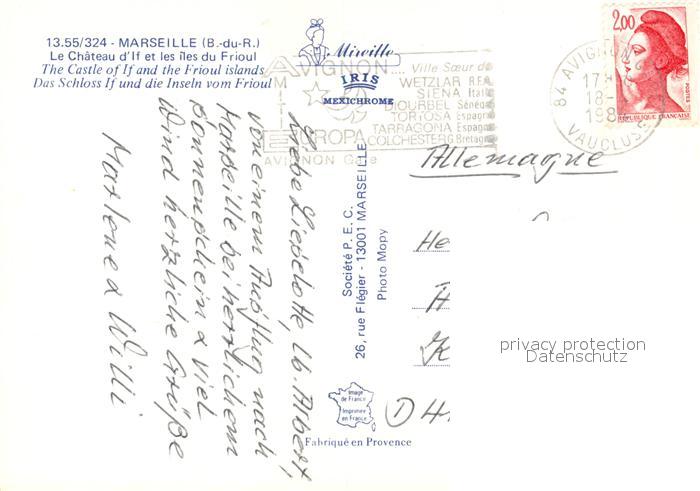 13.55/324 - MARSEILLE (B.-du-R.)
Le Château d'If et les îles du Frioul
The Castle of If and the Frioul islands
Das Schloss If und die Inseln vom Frioul
Mireille
IRIS
MEXICHROME
AVIGNON.... Ville Sœur de
WETZLAR R.F.A
SIENA Ital
DIOURBEL Sénég
TORTOSA Espagn
TARRAGONA Espagn
COLCHESTER G. Bretagn
EUROPA
AVIGNON Gare
84 AVIGNON
17
18
198
VAUCLUSE
2,00
POSTES
RÉPUBLIQUE FRANÇAISE
Allemagne
He
K
D 4
Liebe Lieselotte, lb. Albert,
von einem Ausflug nach
Marseille bei herrlichem
Sonnenschein & viel
Wind herzliche Grüße
Marlene & Willi
Société P. E. C.
26, rue Flégier - 13001 MARSEILLE
Photo Mopy
privacy protection
Datenschutz
Image
de France
Imprimée
en France
Fabriqué en Provence